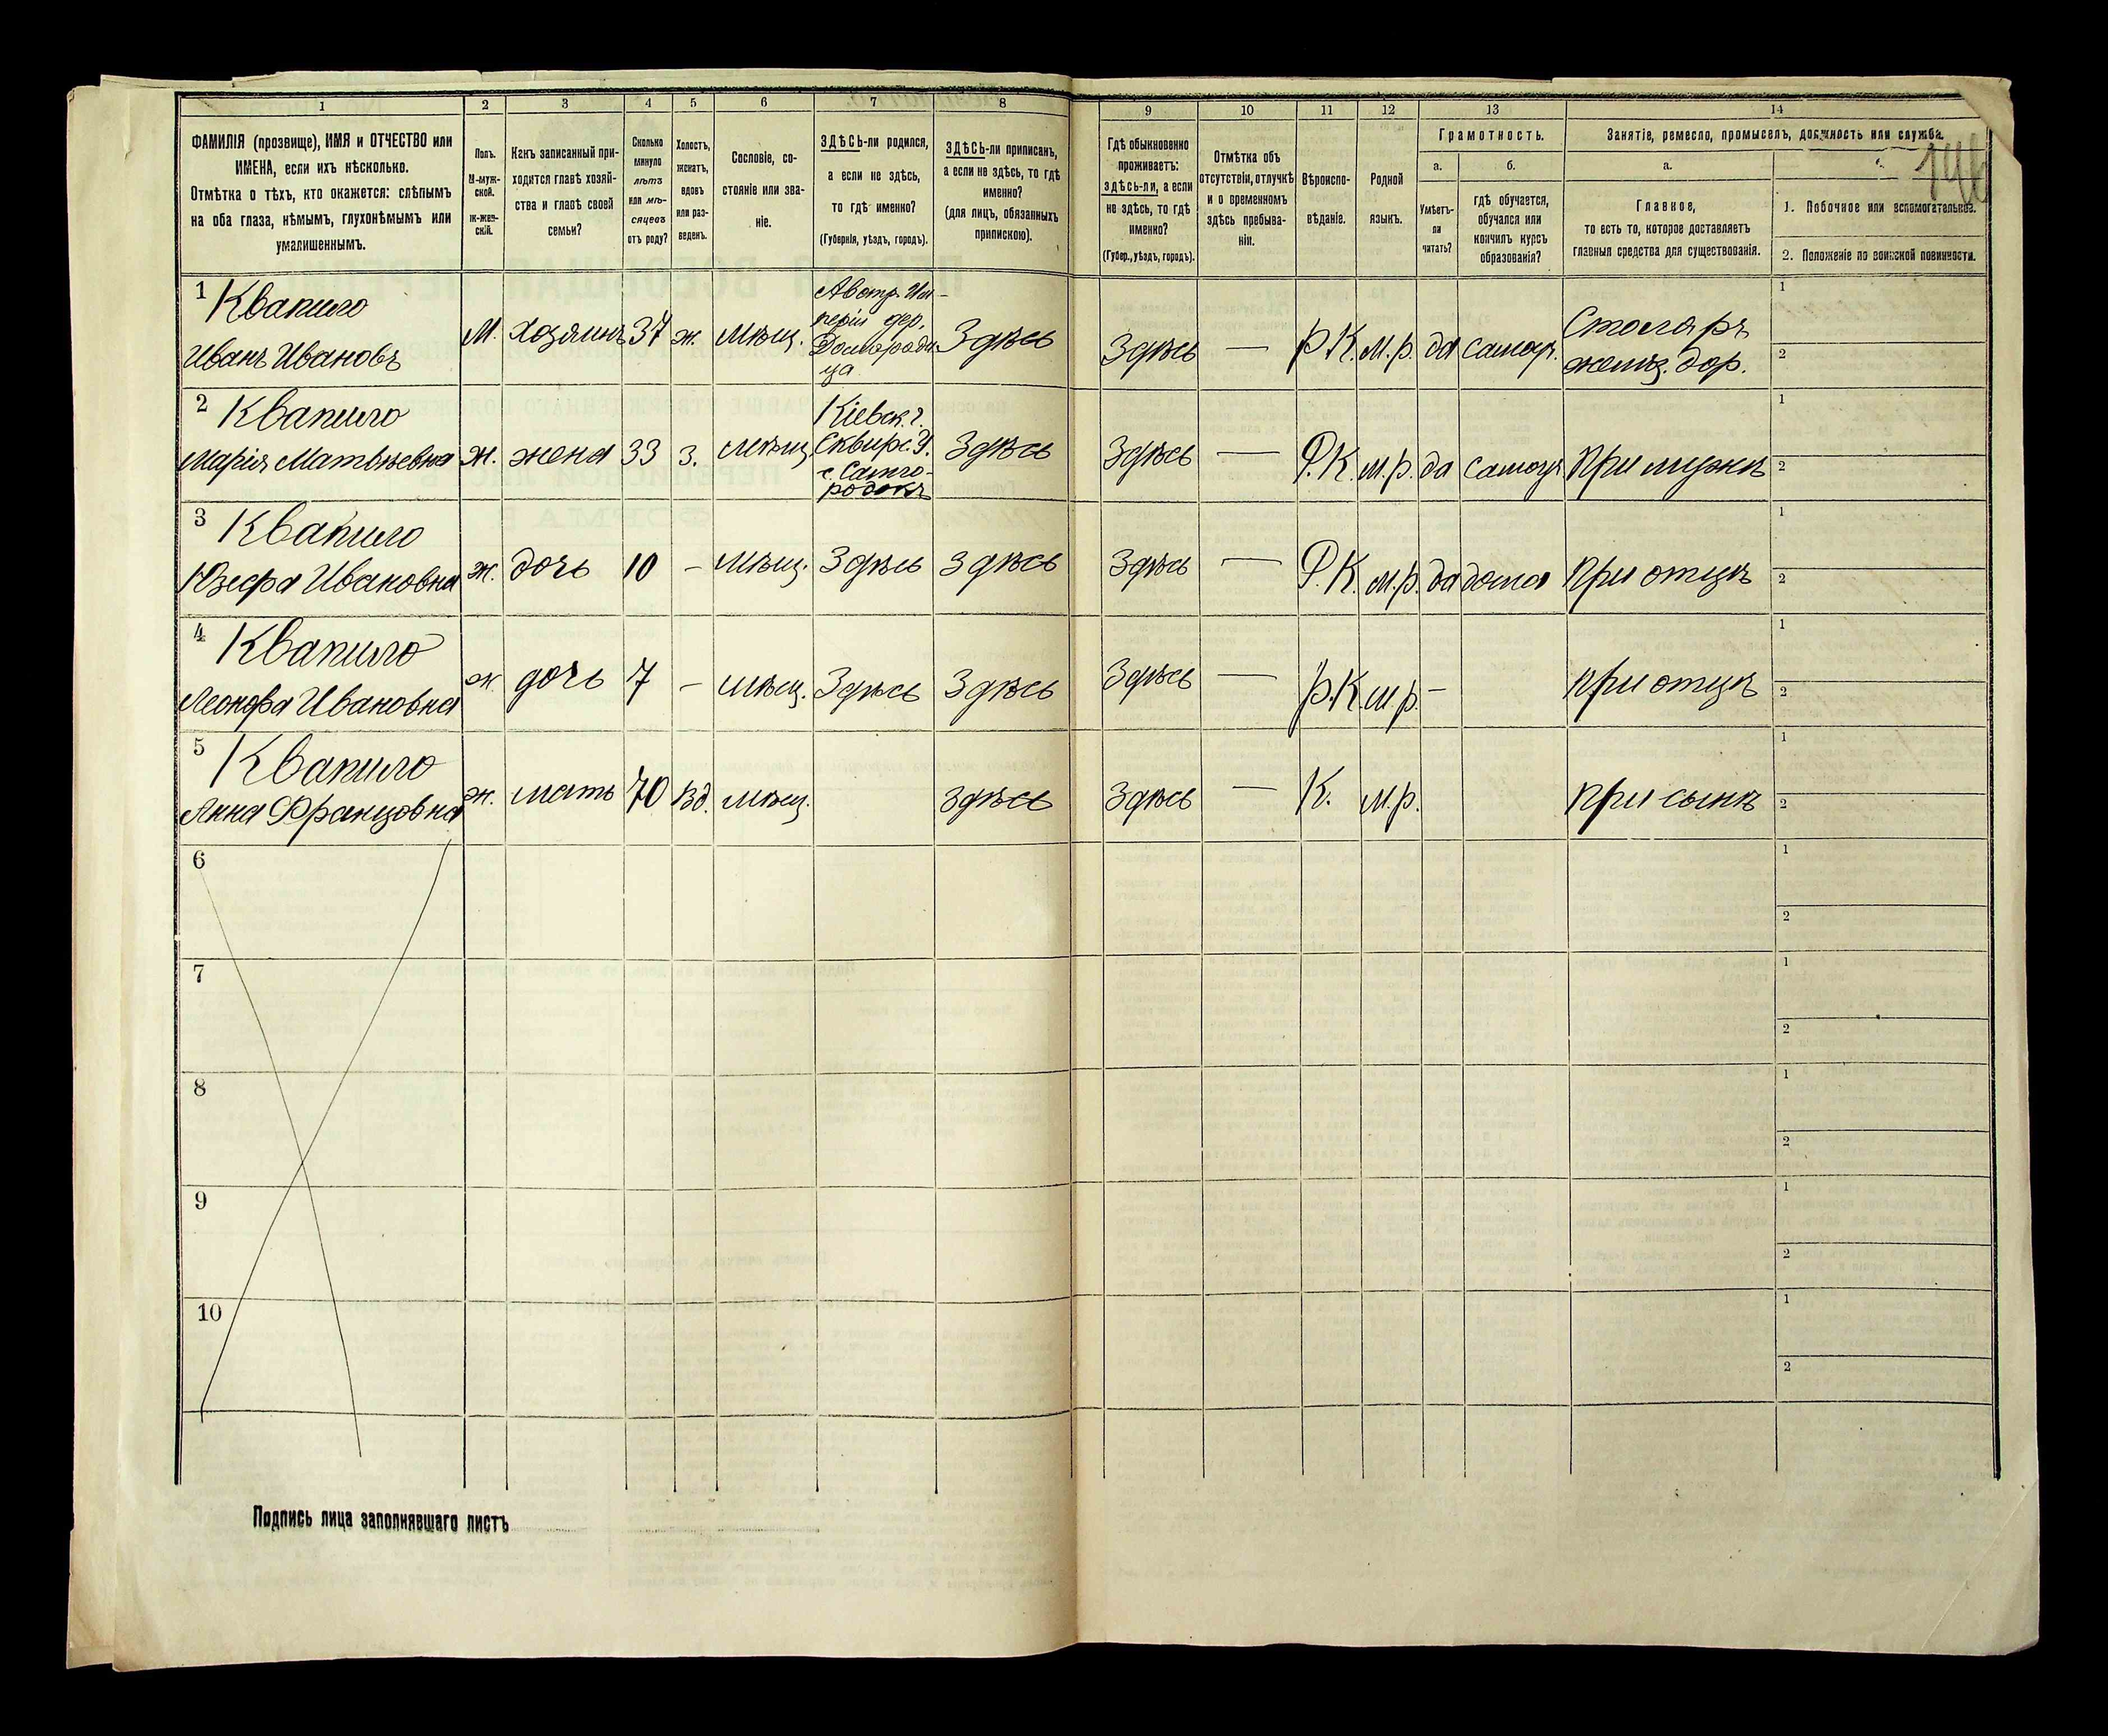 1 2 3 4 5 6 7 8 9 10 11 12 13 14
ФАМИЛІЯ (прозвище), ИМЯ и ОТЧЕСТВО или
ИМЕНА, если ихъ нѣсколько.
Отмѣтка о тѣхъ, кто окажется: слѣпымъ
на оба глаза, нѣмымъ, глухонѣмымъ или
умалишеннымъ.
Полъ.
М-муж-
ской.
Ж-жен-
скій.
Какъ записанный при-
ходится главѣ хозяй-
ства и главѣ своей
семьи?
Сколько
минуло
лѣтъ
или мѣ-
сяцевъ
отъ роду?
Холостъ,
женатъ,
вдовъ
или раз-
веденъ.
Сословіе, со-
стояніе или зва-
ніе.
ЗДѢСЬ-ли родился,
а если не здѣсь,
то гдѣ именно?
(Губернія, уѣздъ, городъ).
ЗДѢСЬ-ли приписанъ,
а если не здѣсь, то гдѣ
именно?
(для лицъ, обязанныхъ
припискою).
Гдѣ обыкновенно
проживаетъ:
здѣсь-ли, а если
не здѣсь, то гдѣ
именно?
(Губер., уѣздъ, городъ).
Отмѣтка объ
отсутствіи, отлучкѣ
и о временномъ
здѣсь пребыва-
ніи.
Вѣроиспо-
вѣданіе.
Родной
языкъ.
Грамотность.
а. б.
Умѣетъ-
ли
читать?
гдѣ обучается,
обучался или
кончилъ курсъ
образованія?
Занятіе, ремесло, промыселъ, должность или служба.
а.
Главное,
то есть то, которое доставляетъ
главныя средства для существованія.
146
1. Побочное или вспомогательное.
2. Положеніе по воинской повинности.
1 Квапило
Иванъ Ивановъ
М. Хозяинъ 37 ж. мѣщ.
Австр. Им-
періи дер.
Домаради-
ца
Здѣсь Здѣсь — Р.К. м.р. да самоуч.
Столяръ
желѣз. дор.
1
2
2 Квапило
Марія Матвѣевна
ж. жена 33 з. мѣщ.
Кіевск. г.
Сквирс. У.
с. Самго-
родокъ
Здѣсь Здѣсь — Р.К. м.р. да самоуч при мужѣ
1
2
3 Квапило
Юзефа Ивановна
ж. дочь 10 – мѣщ. Здѣсь здѣсь Здѣсь — Р.К. м.р. да дома при отцѣ
1
2
4 Квапило
Леонора Ивановна
ж. дочь 7 – мѣщ. Здѣсь Здѣсь Здѣсь — Р.К. м.р. – при отцѣ
1
2
5 Квапило
Анна Францовна
ж. мать 70 вд. мѣщ. здѣсь Здѣсь — К. м.р. при сынѣ
1
2
6
1
2
7
1
2
8
1
2
9
1
2
10
1
2
Подпись лица заполнявшаго листъ